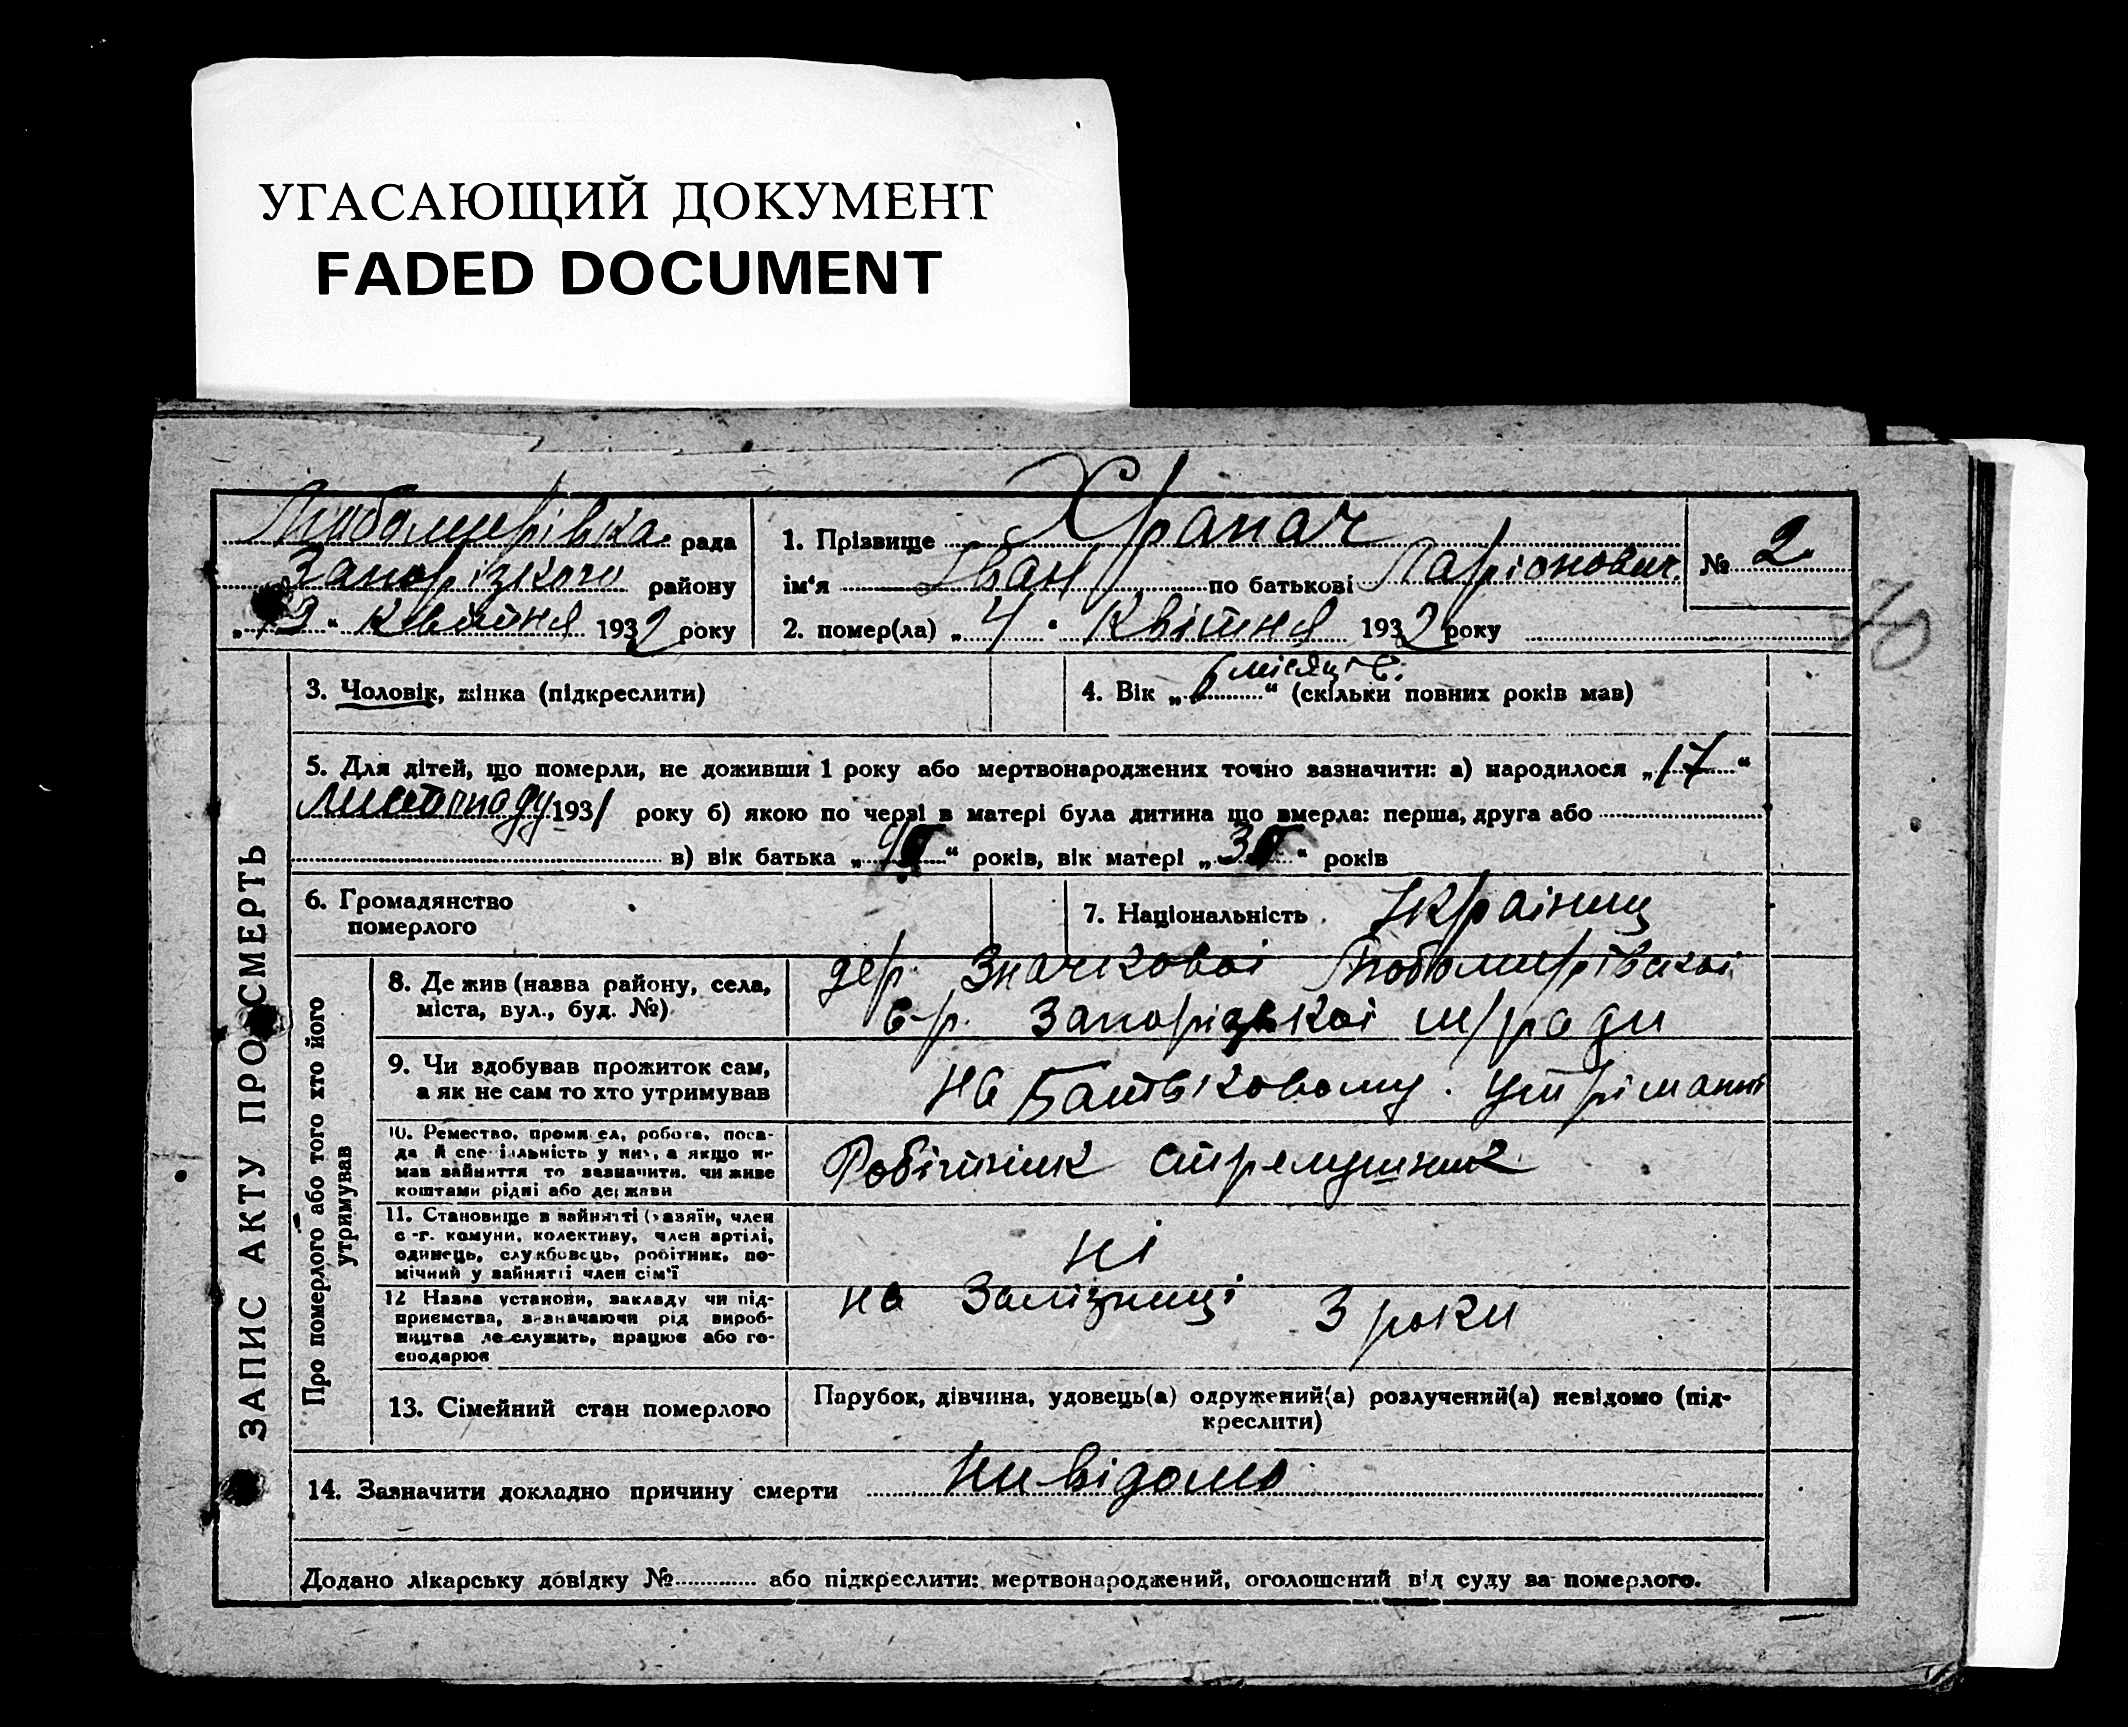 УГАСАЮЩИЙ ДОКУМЕНТ
FADED DOCUMENT
Любомирівка рада
Запорізкого району
„13“ квітня 1932 року
1. Прізвище Храпач
ім'я Іван по батькові Ларіонович
№ 2
2. помер(ла) „4“ Квітня 1932 року
70
ЗАПИС АКТУ ПРО СМЕРТЬ
3. Чоловік, жінка (підкреслити)
4. Вік „6 місяців“ (скільки повних років мав)
5. Для дітей, що померли, не доживши 1 року або мертвонароджених точно зазначити: а) народилося „17“
листопаду 1931 року б) якою по черзі в матері була дитина що вмерла: перша, друга або
в) вік батька „ “ років, вік матері „ “ років
6. Громадянство
померлого
7. Національність Україниц
Про померлого або того хто його
утримував
8. Де жив (назва району, села,
міста, вул., буд. №)
дер. Значкової Любомирівскої
с-р. Запорізької м/ради
9. Чи здобував прожиток сам,
а як не сам то хто утримував
на Батьковому утріманні
10. Ремество, промисел, робота, поса-
да й спеціальність у них, а якщо не
мав зайняття то зазначити, чи живе
коштами рідні або держави
Робітнік стрелушник
11. Становище в зайнятті (хазяїн, член
с.-г. комуни, колективу, член артілі,
одинець, службовець, робітник, по-
мічний у зайнятті член сім'ї
ні
12 Назва установи, закладу чи під-
приємства, зазначаючи рід вироб-
ництва де служить, працює або го-
сподарює
на Залізниці 3 роки
13. Сімейний стан померлого
Парубок, дівчина, удовець(а) одружений(а) розлучений(а) невідомо (під-
креслити)
14. Зазначити докладно причину смерти нивідомо
Додано лікарську довідку № або підкреслити: мертвонароджений, оголошений від суду за померлого.